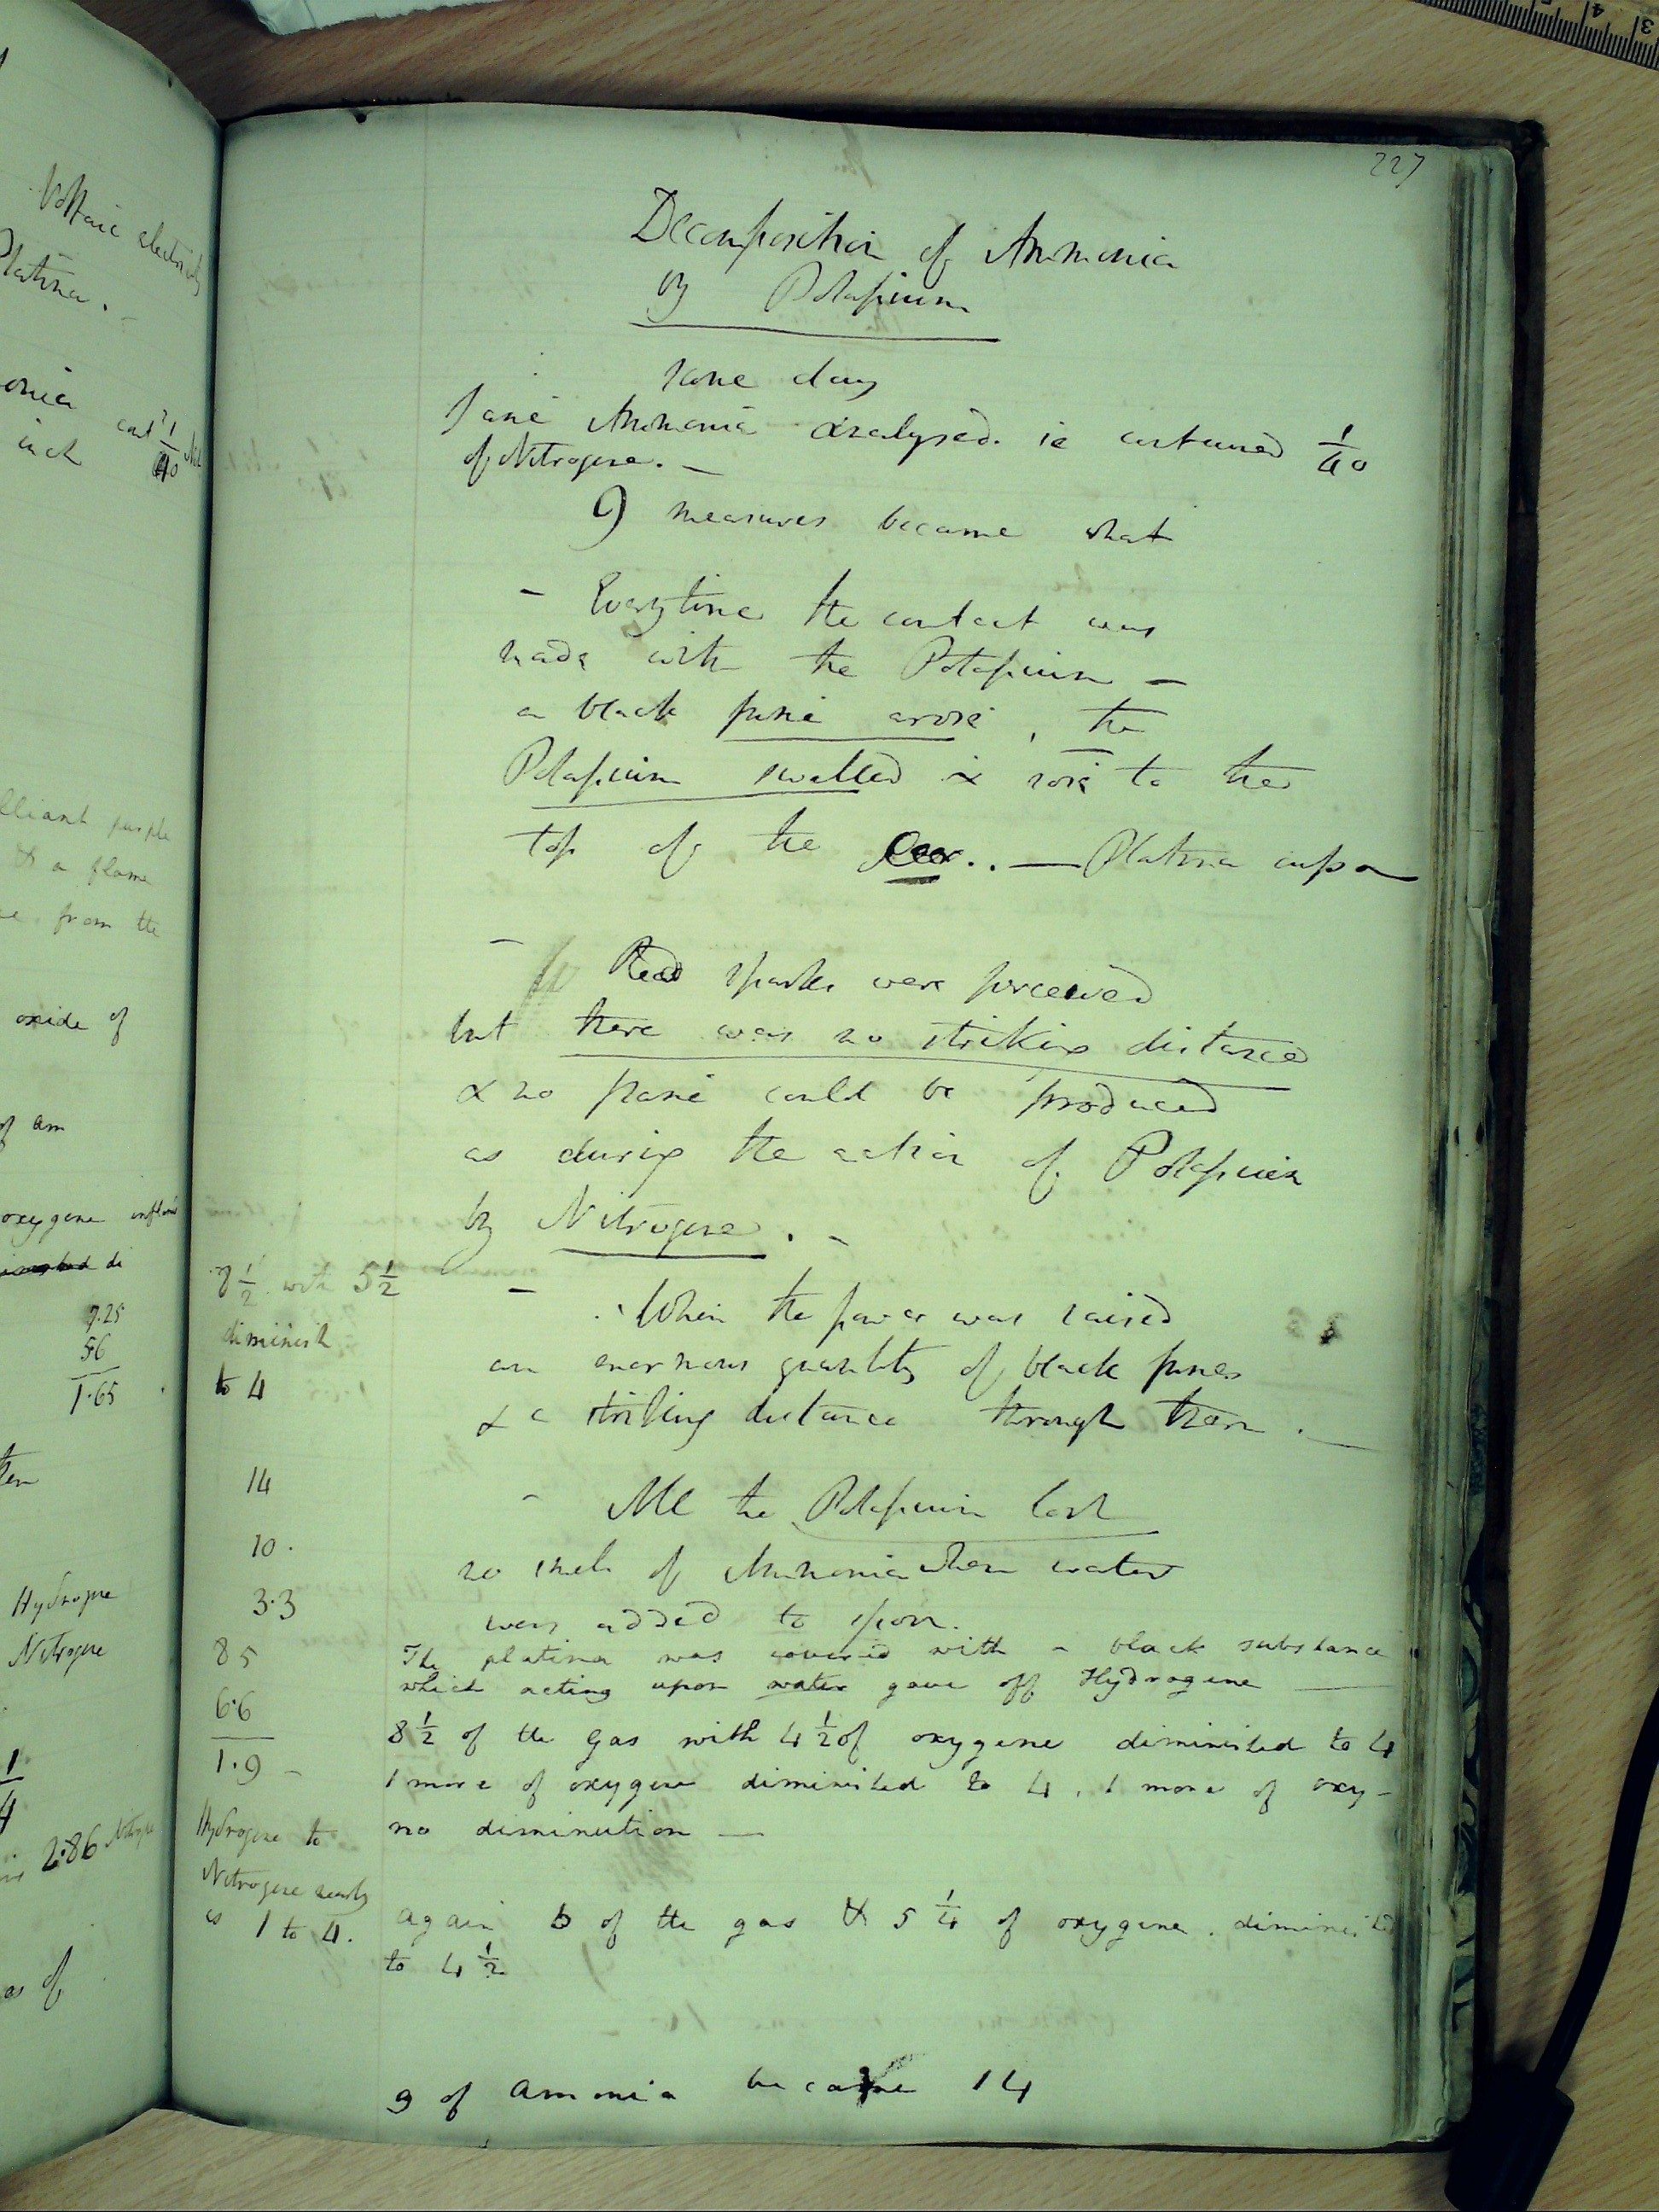 Voltaic electricity
Platina.
onia
inch
lliant purple
& a flame
from the
oxide of
of am
oxygene
7.25
56
1.65
Hydrogene
Nitrogene
1/4
2.86
as of
227
Decomposition of Ammonia
by Potassium
same day
Same Ammonia analysed. ie contained 1/40
of Nitrogene. –
9 measures became what
– Everytime the contact was
made with the Potassium –
a black fume arose, the
Potassium swelled & rose to the
top of the . . — Platina cup
– Red sparks were perceived
but there was no striking distance
& no flame could be produced
as during the action of Potassium
by Nitrogene. –
8 1/2 with 5 1/2
diminish
to 4
– When the power was raised
an enormous quantity of black fumes
& a striking distance through them. —
14
10.
3.3
85
6.6
1.9 –
Hydrogene to
Nitrogene nearly
as 1 to 4.
– All the Potassium lost
no smell of Ammonia when water
was added to
The platina was covered with a black substance
which acting upon water gave off Hydrogene —
8 1/2 of the gas with 4 1/2 of oxygene diminished to 4
1 more of oxygene diminished to 4, 1 more of oxy–
no diminution —
again of the gas & 5 1/4 of oxygene. diminished
to 4 1/2
9 of amonia became 14